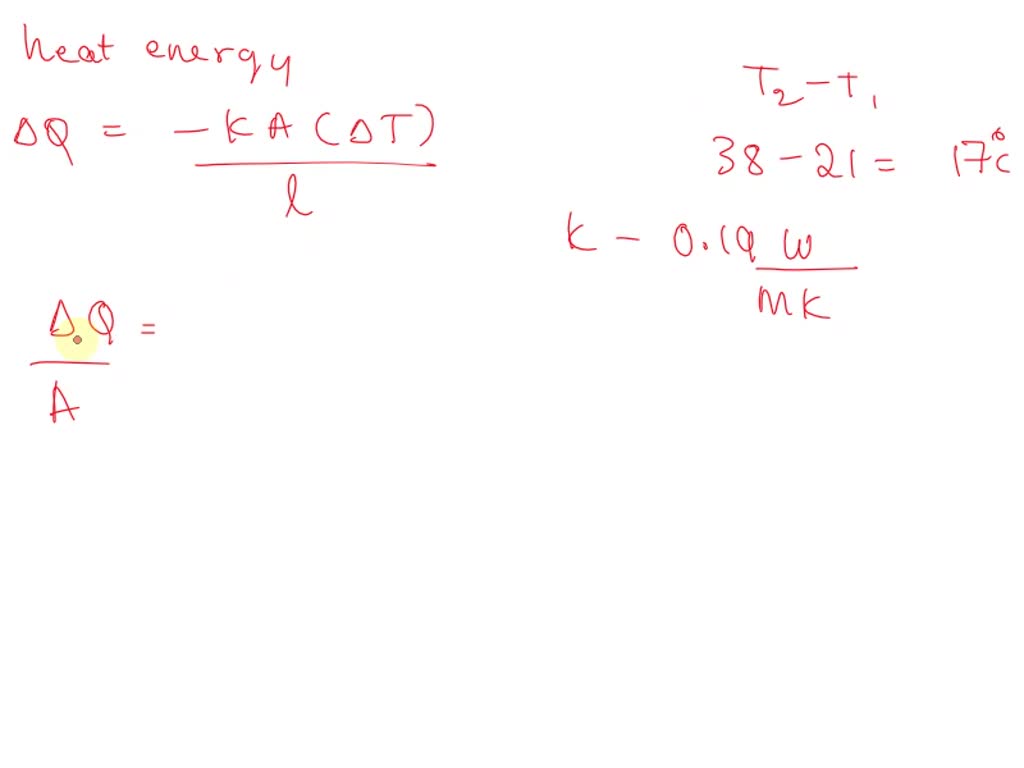 heat energy
ΔQ = -KA(ΔT)
l
T2 - T1
38 - 21 = 17°C
K - 0.19 W
MK
ΔQ =
A